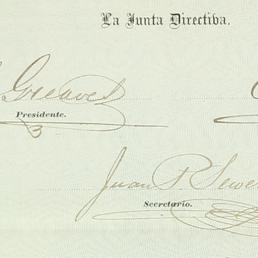 La Junta Directiva.
Greaves
Presidente.
Juan P.
Secretario.